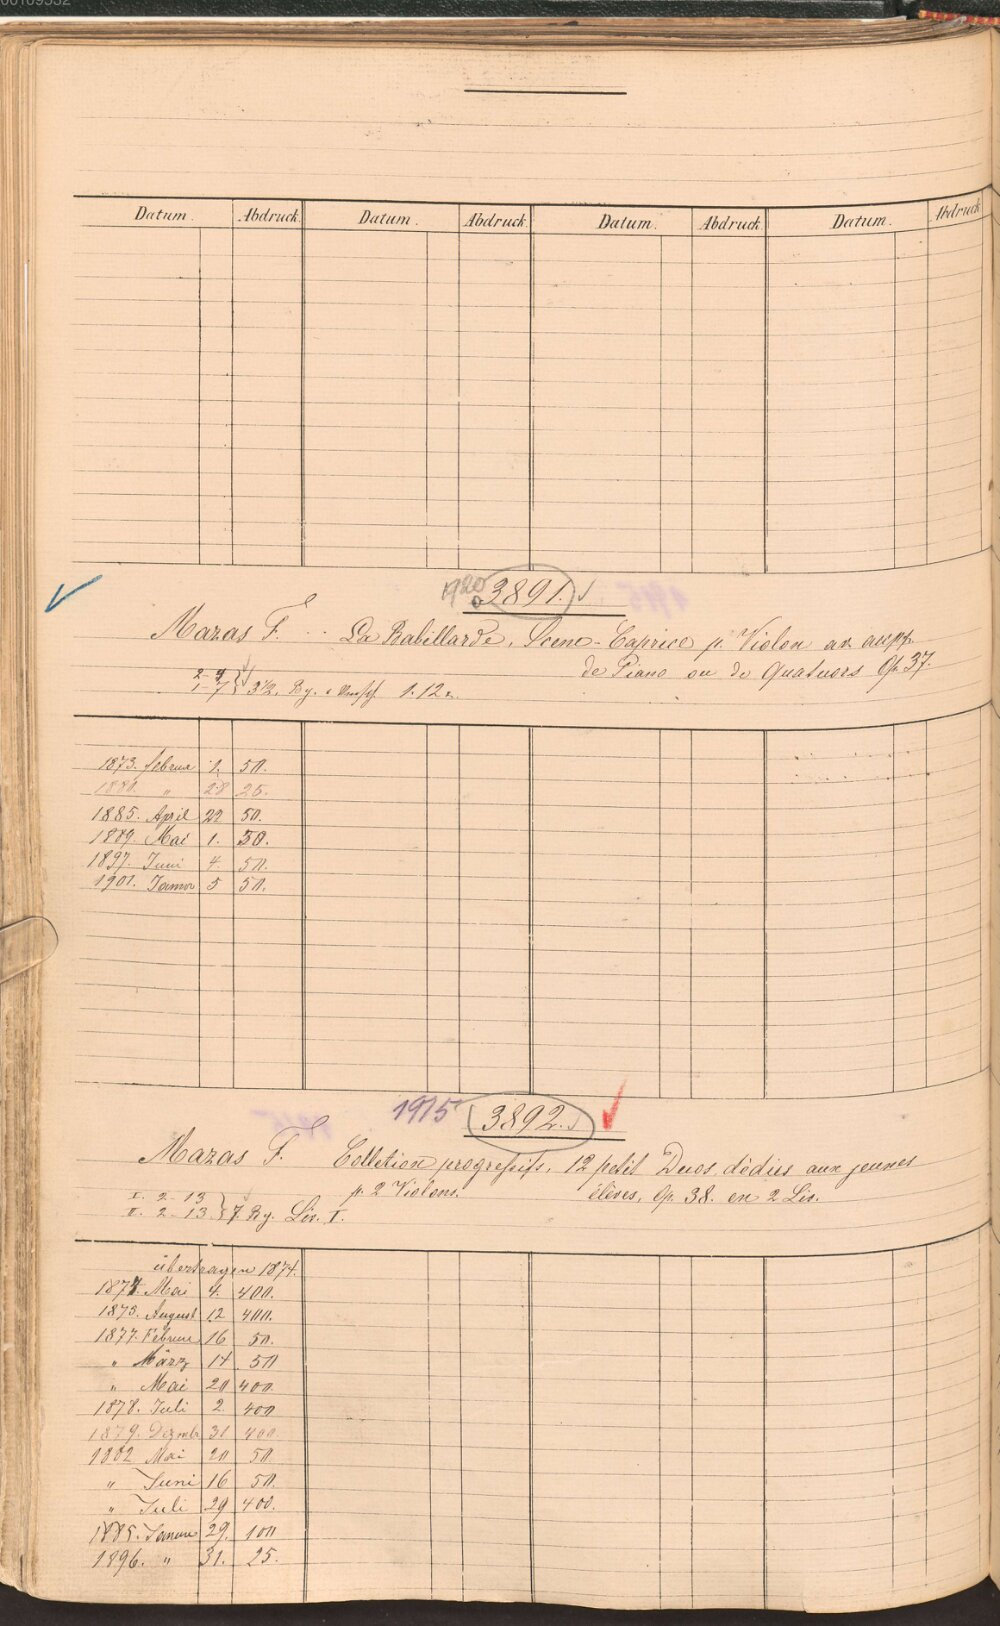 Datum. Abdruck. Datum. Abdruck. Datum. Abdruck. Datum. Abdruck.
1920 3891.
Mazas F. La Babillarde, Scene-Caprice p. Violon av.
de Piano ou de Quatuors Op. 37.
3 1/2. 1. 12
1873. Februar 1. 50.
" 28 25.
1885. April 22 50.
1889. Mai 1. 50.
1897. Juni 4. 50.
1901. Januar 5 50.
1915 3892.
Mazas F. Colletion progressifs. 12 petit Duos dédiés aux jeunes
p. 2 Violons. élèves, Op. 38. en 2 Liv.
I. 2-13
II. 2-13 } 7. Bg. Liv. I.
übertragen 1874.
Mai 4. 400.
1873. August 12 400.
1877. Februar 16 50.
" März 14 50
" Mai 20 400.
1878. Juli 2. 400
1879. Dezmb. 31 400.
1882 Mai 20 50.
" Juni 16 50.
" Juli 29 400.
1885. Januar 29. 100
1896. " 31. 25.